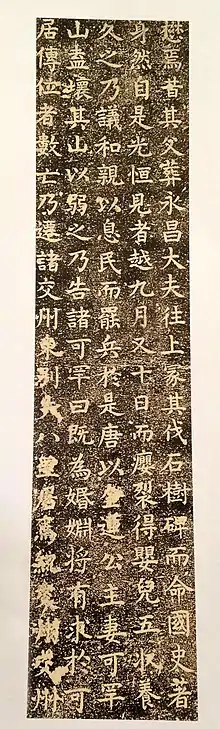 懋焉昔其父葬永昌大夫往上冢其伐石樹碑而命國史著
身然自是光恒見者越九月又十日而癭裂得嬰兒五收養
久之乃議和親以息民而罷兵於是唐以金蓮公主妻可罕
山盍壞其山以弱之乃告諸可罕曰既為婚婣將有求於可
居傳位者數亡乃遷諸交州東別失八里居焉州